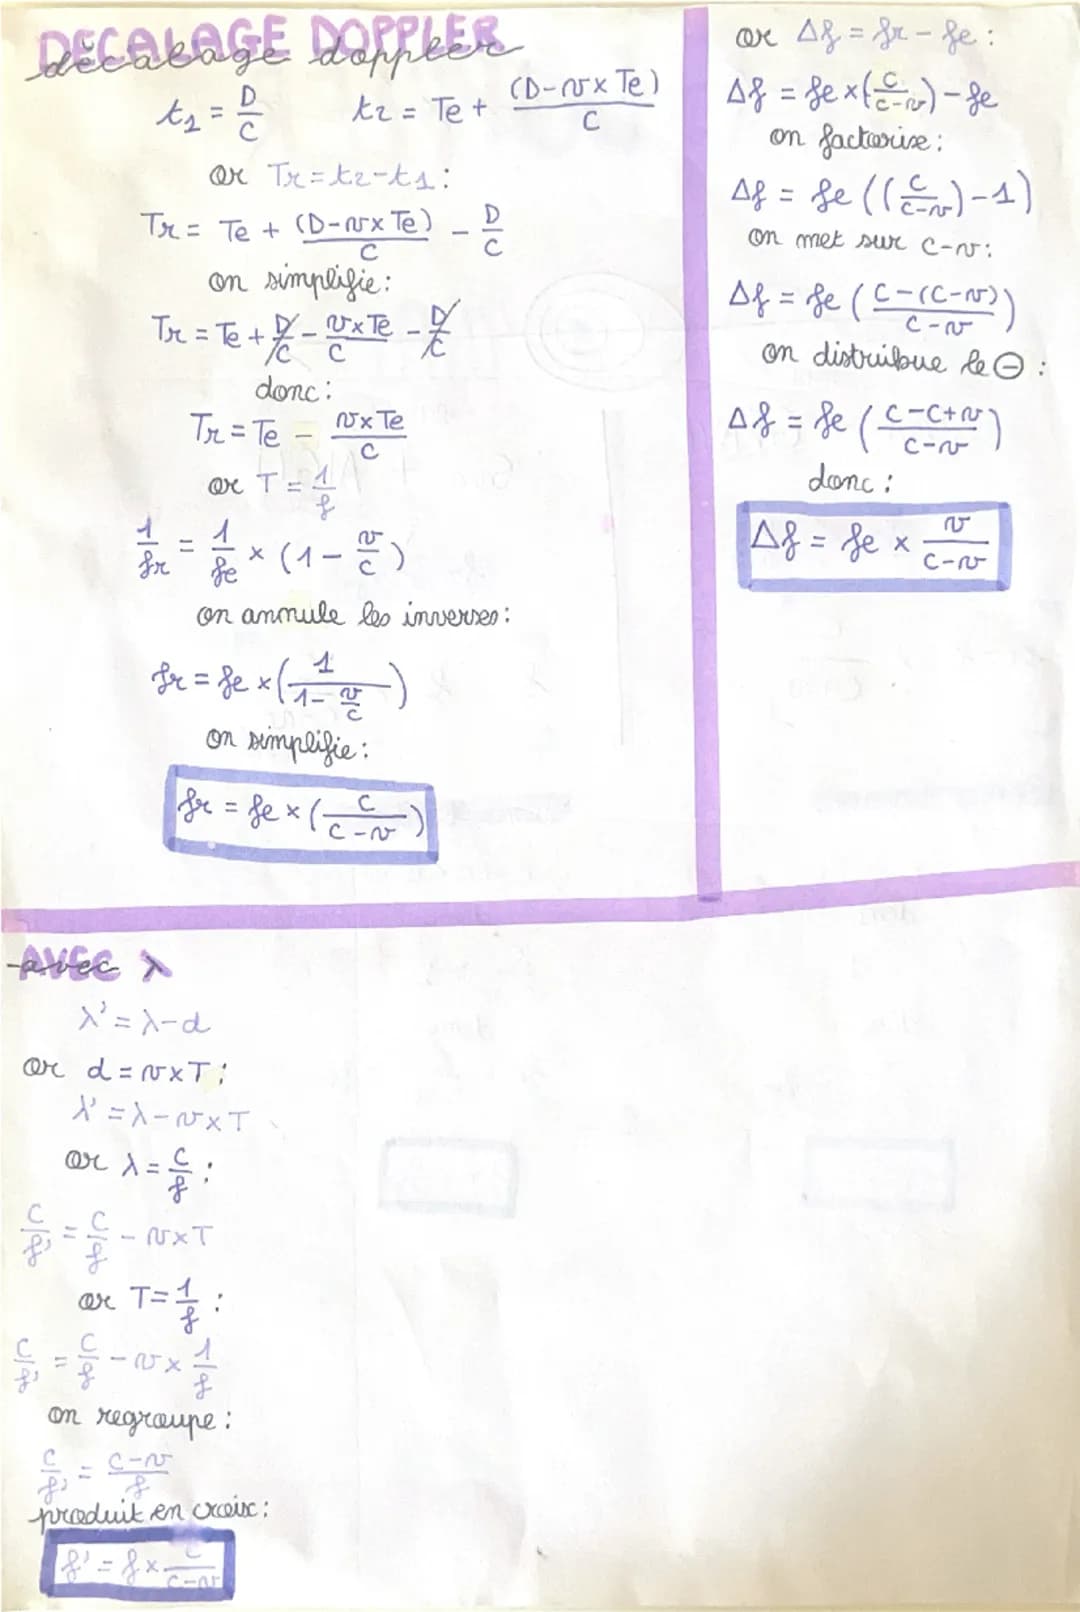 DECALAGE DOPPLER
décalage doppler
t1 = D/C    t2 = Te + (D-v×Te)/C
or Tr=t2-t1:
Tr = Te + (D-v×Te)/C - D/C
on simplifie:
Tr = Te + D/C - v×Te/C - D/C
donc:
Tr = Te - v×Te/C
or T = 1/f
1/fr = 1/fe × (1 - v/c)
on annule les inverses:
fr = fe × (1/(1 - v/c))
on simplifie:
fr = fe × (C/(C-v))
or Δf = fr - fe:
Δf = fe × (C/(C-v)) - fe
on factorise:
Δf = fe ((C/(C-v)) - 1)
on met sur C-v:
Δf = fe ((C-(C-v))/(C-v))
on distribue le ⊖ :
Δf = fe ((C-C+v)/(C-v))
donc:
Δf = fe × v/(C-v)
AVEC λ
avec λ
λ' = λ-d
or d = v×T;
λ' = λ-v×T
or λ = C/f :
C/f' = C/f - v×T
or T = 1/f :
C/f' = C/f - v × 1/f
on regroupe :
C/f' = (C-v)/f
produit en croix :
f' = f × C/(C-v)